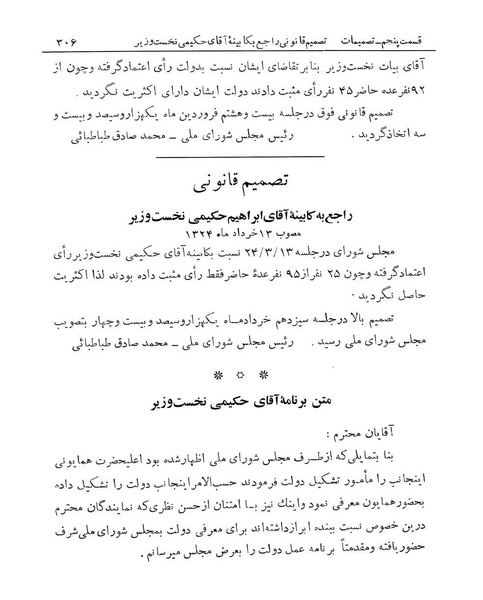 قسمت پنجم ـ تصمیمات تصمیم قانونی راجع بکابینهٔ آقای حکیمی نخست‌وزیر ۳۰۶
آقای بیات نخست‌وزیر بنابر تقاضای ایشان نسبت بدولت رأی اعتماد گرفته و چون از
۹۲ نفر عده حاضر ۴۵ نفر رأی مثبت دادند دولت ایشان دارای اکثریت نگردید .
تصمیم قانونی فوق در جلسه بیست و هشتم فروردین ماه یکهزار و سیصد و بیست و
سه اتخاذ گردید . رئیس مجلس شورای ملی ـ محمد صادق طباطبائی
تصمیم قانونی
راجع به کابینهٔ آقای ابراهیم حکیمی نخست‌وزیر
مصوب ۱۳ خرداد ماه ۱۳۲۴
مجلس شورای در جلسه ۲۴/۳/۱۳ نسبت بکابینه آقای حکیمی نخست‌وزیر رأی
اعتماد گرفته و چون ۲۵ نفر از ۹۵ نفر عدهٔ حاضر فقط رأی مثبت داده بودند لذا اکثریت
حاصل نگردید .
تصمیم بالا در جلسه سیزدهم خرداد ماه یکهزار و سیصد و بیست و چهار بتصویب
مجلس شورای ملی رسید . رئیس مجلس شورای ملی ـ محمد صادق طباطبائی
* * *
متن برنامهٔ آقای حکیمی نخست‌وزیر
آقایان محترم :
بنا بتمایلی که از طرف مجلس شورای ملی اظهار شده بود اعلیحضرت همایونی
اینجانب را مأمور تشکیل دولت فرمودند حسب‌الامر اینجانب دولت را تشکیل داده
بحضور همایون معرفی نمود و اینك نیز بـا امتنان از حسن نظری که نمایندگان محترم
درین خصوص نسبت ببنده ابراز داشته‌اند برای معرفی دولت بمجلس شورای ملی شرف
حضور یافته و مقدمتاً برنامه عمل دولت را بعرض مجلس میرسانم .